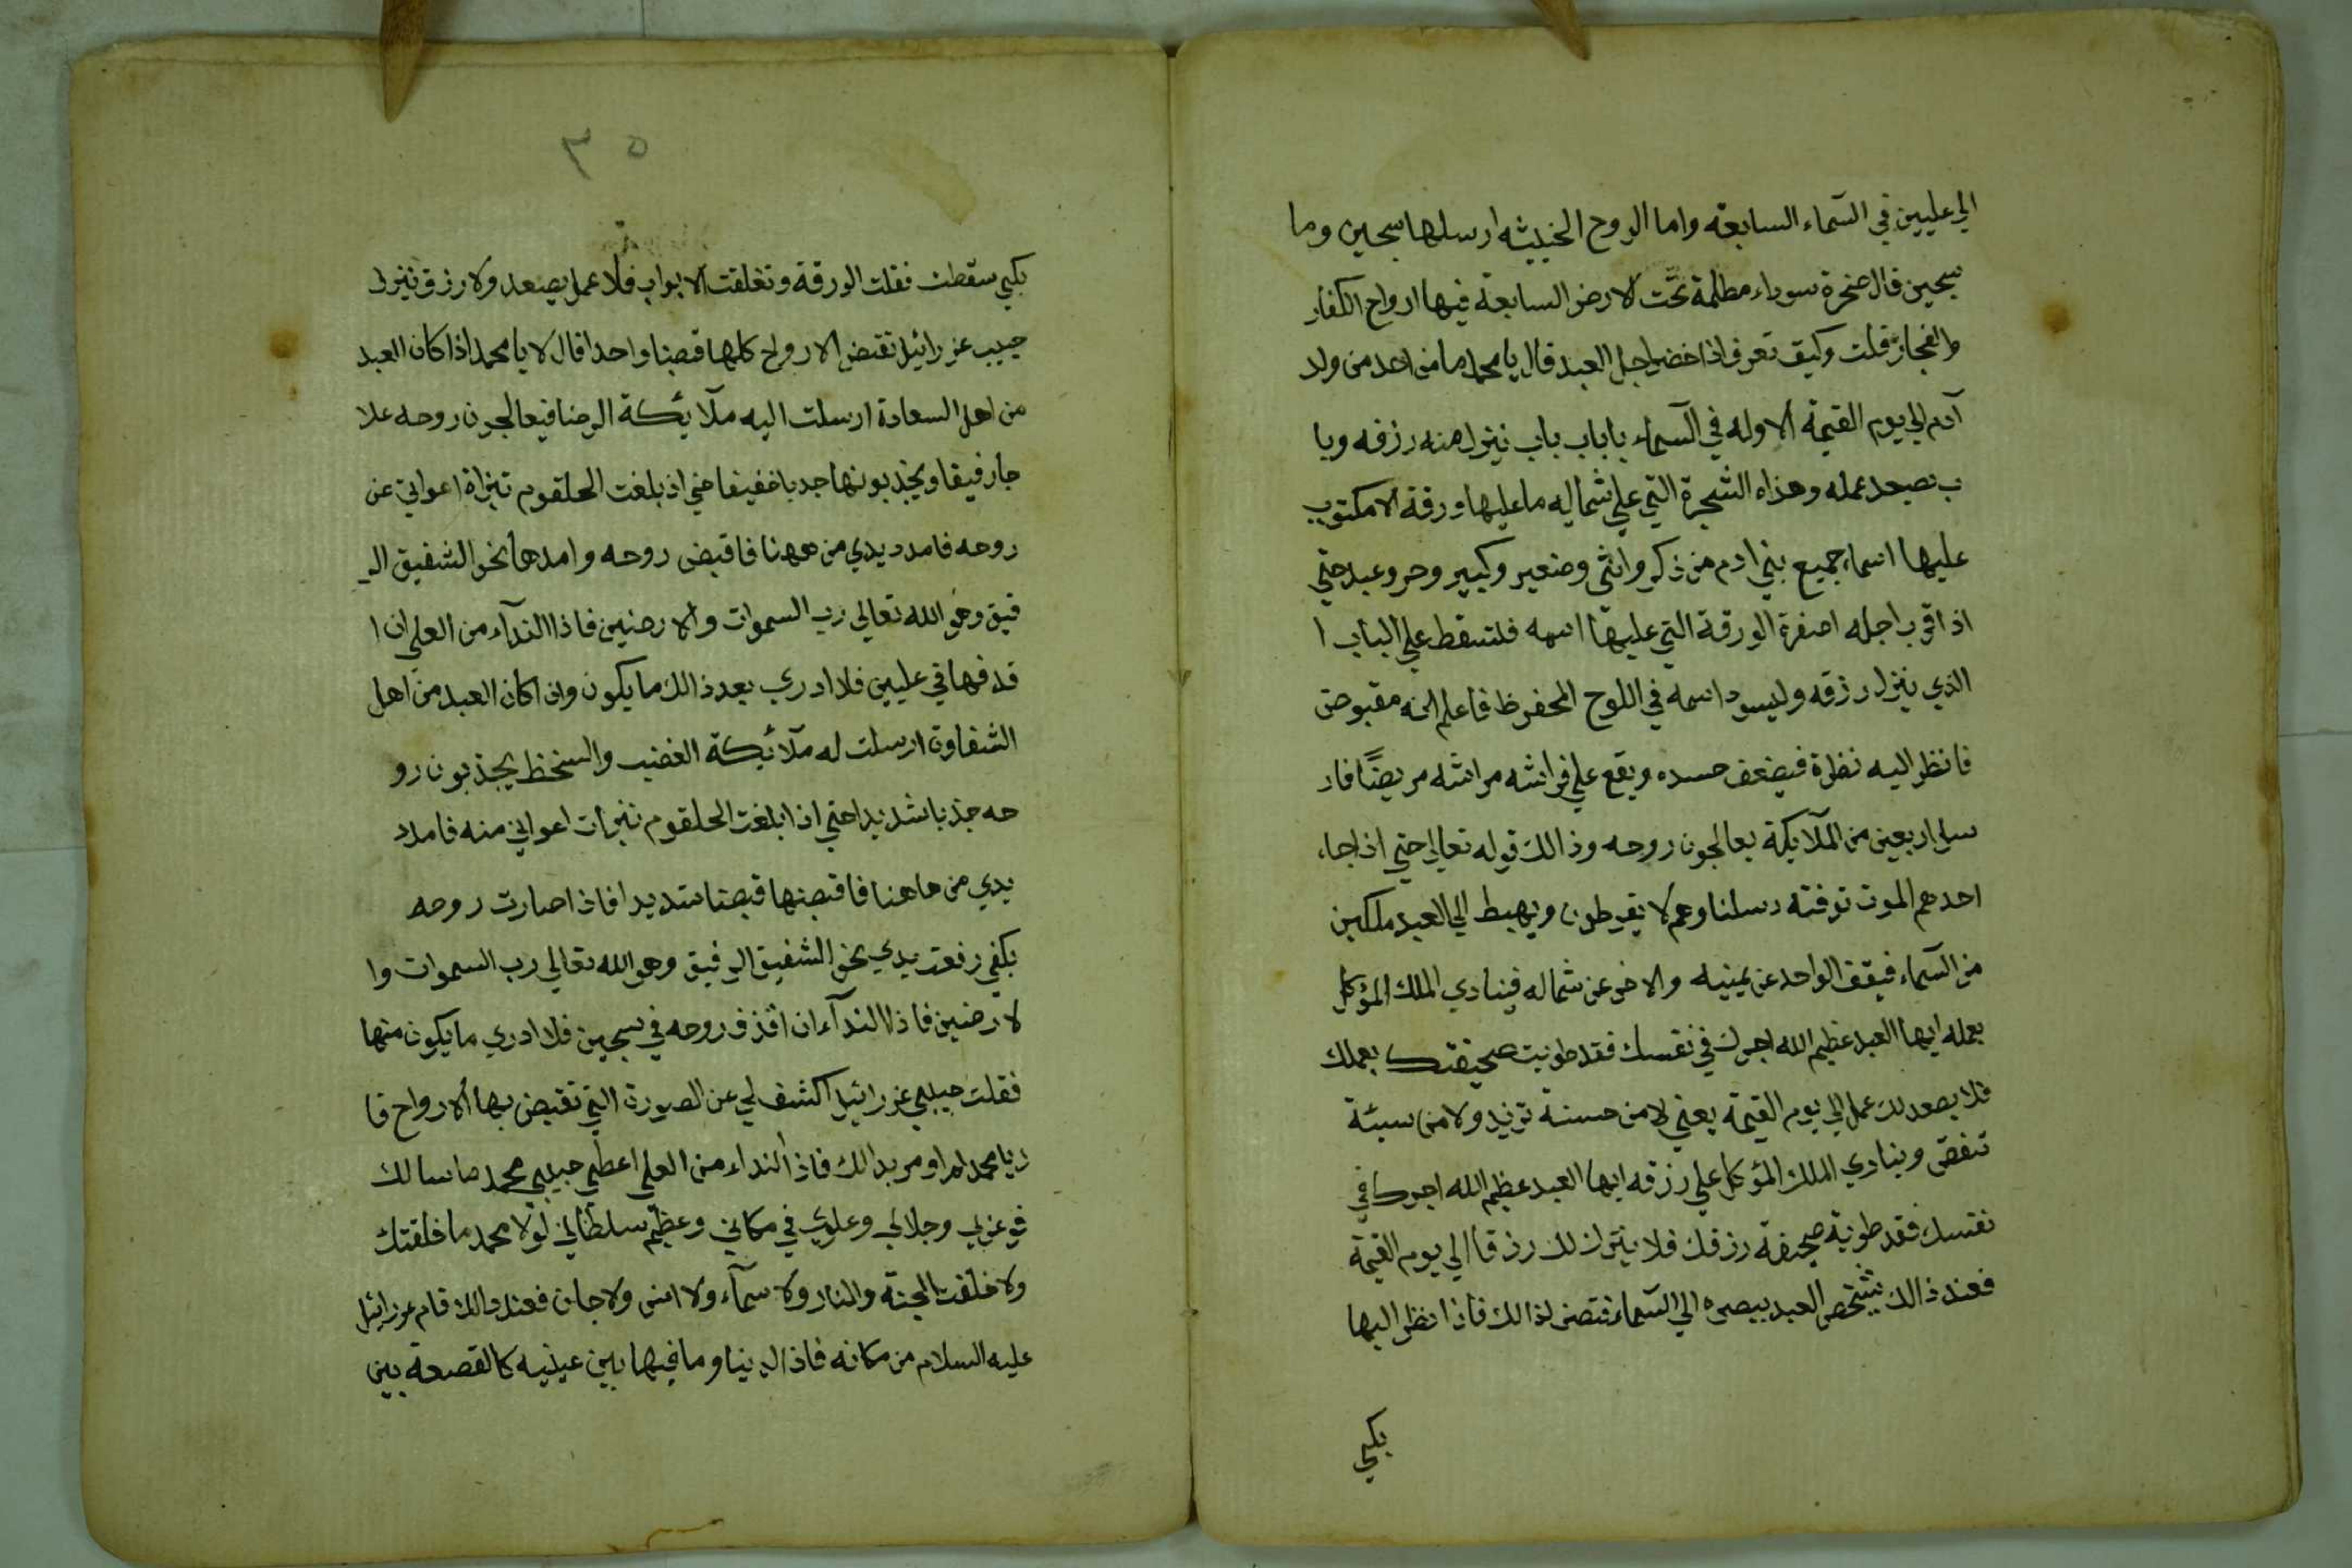 الي عليين في السّماء السابعة واما الروح الخبيثه ارسلها سجين وما
سجين قال صخرة سوداء مظلمة تحت الارض السابعة فيها ارواح الكفار
والفجار قلت وكيف تعرف اذا حضر اجل العبد قال يا محمد ما من احد من ولد
آدم الي يوم القيمة الا وله في السّماء بابا باب باب ينزل منه رزقه وبا
ب يصعد عمله وهذاه الشجرة التي علي شماليه ما عليها ورقة الا مكتوب
عليها اسماء جميع بني ادم من ذكر وانثي وصغير وكبير وحر وعبد حتي
اذا قرب اجله اصفرة الورقة التي عليها اسمه فلتسقط علي الباب ا
الذي ينزل رزقه وليسود اسمه في اللوح المحفوظ فاعلم انه مقبوض
فانظر اليه نظرة فيضعف جسده ويقع علي فراشه مراشه مريضًا فار
سل اربعين من الملآيكة يعالجون روحه وذالك قوله تعالي حتي اذا جاء
احدهم الموت توفته رسلنا وهم لا يفرطون ويهبط الي العبد ملكين
من السّماء فيقف الواحد عن يمينه والاخر عن شماله فينادي الملك المؤكل
بعمله ايها العبد عظيم الله اجرك في نفسك فقد طويت صحيفتك بعملك
فلا يصعد لك عمل الي يوم القيمة يعني لا من حسنة تزيد ولا من سيئة
تنقص وينادي الملك المؤكل علي رزقه ايها العبد عظيم الله اجرك في
نفسك فقد طوية صحيفة رزقك فلا ينزل لك رزقا الي يوم القيمة
فعند ذالك يشخص العبد ببصره الي السّماء فتصى لذالك فاذا نظر اليها
بكي
٣٥
بكي سقطت فقلت الورقة وتغلقت الابواب فلا عمل يصعد ولا رزق ينزل
حبيب عزرائيل تقبض الارواح كلها قبضا واحدا قال لا يا محمد اذا كان العبد
من اهل السعادة ارسلت اليه ملآئكة الرضا فيعالجون روحه علا
جا رفيقا ويجذبونها جدبا خفيفا حتي اذ بلغت الحلقوم تبراة اعواني عن
روحه فامدد يدي من ههنا فاقبض روحه وامدها نحو الشفيق الر
فيق وهو الله تعالي رب السموات والارضين فاذا الندآء من العلي ان ا
قدفها في عليين فلا ادري بعد ذالك ما يكون وان كان العبد من اهل
الشقاوة ارسلت له ملآئكة الغضب والسخط يجذبون رو
حه جذبا شديدا حتي اذا بلغت الحلقوم تبرأت اعواني منه فامدد
يدي من هاهنا فاقبضها قبضا شديدا فاذا صارت روحه
بكفي رفعت يدي نحو الشفيق الرفيق وهو الله تعالي رب السموات وا
لارضين فاذا الندآء ان اقذف روحه في سجين فلا ادري ما يكون منها
فقلت حبيبي عزرائيل اكشف لي عن الصورة التي تقبض بها الارواح قا
ل يا محمد لم اومر بذالك فاذا النداء من العلي اعطي حبيبي محمد ما سالك
فوعزتي وجلالي وعلوي في مكاني وعظيم سلطاني لولا محمد ما خلقتك
ولا خلقت الجنة والنار ولا سمآء ولا انس ولا جان فعند ذالك قام عزرائيل
عليه السلام من مكانه فاذا الدنيا وما فيها بين عينيه كالقصعة بين